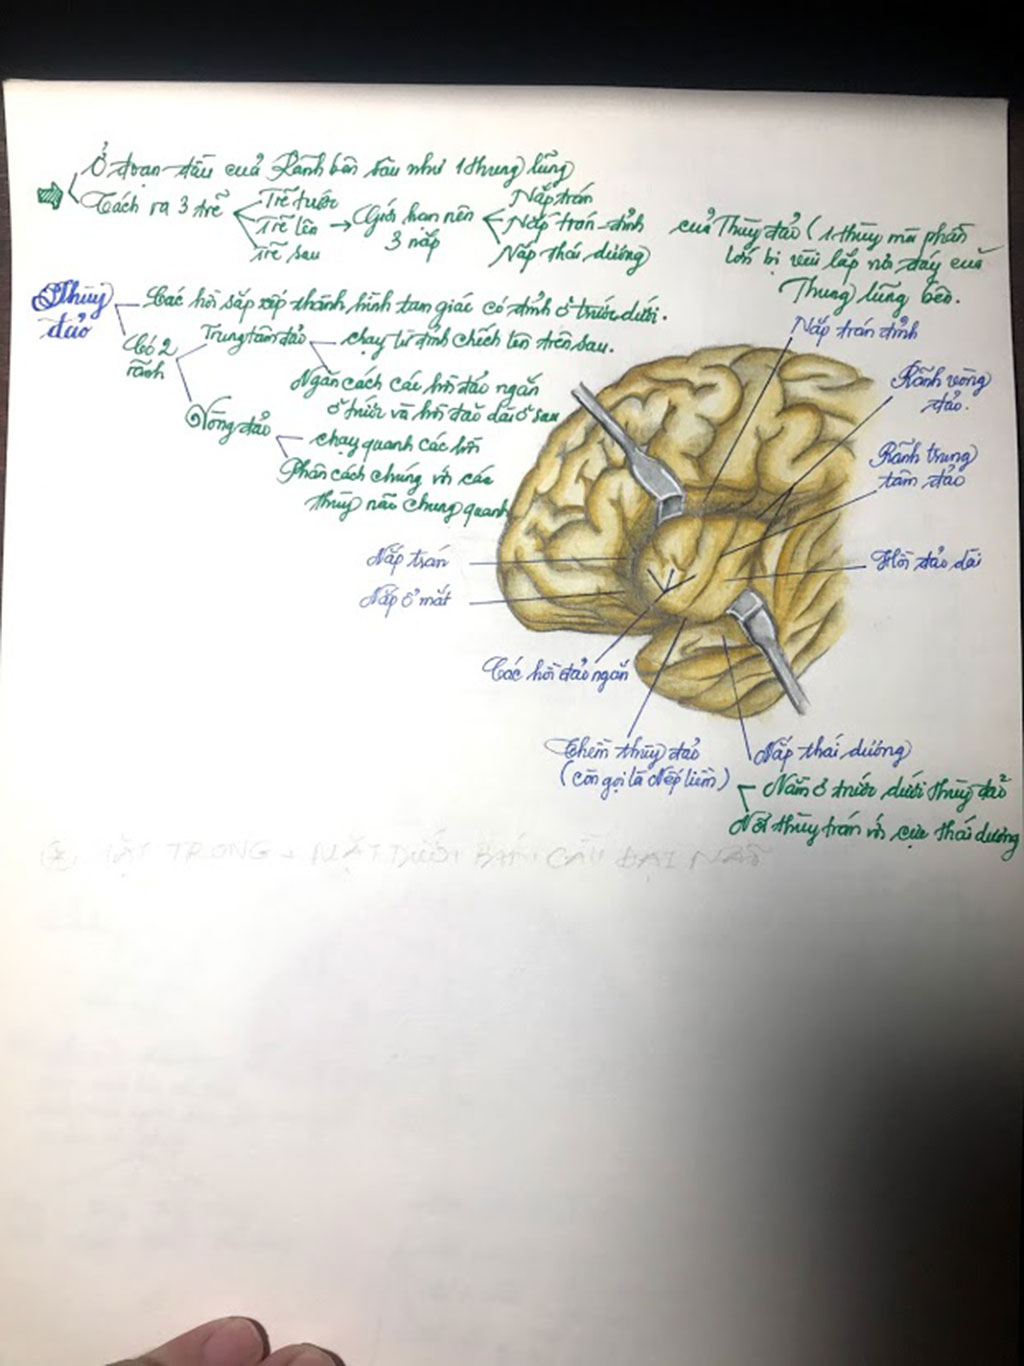 Ở đoạn đầu của Rãnh bên sâu như 1 thung lũng
Tách ra 3 trẽ
Trẽ trước
Trẽ lên
Trẽ sau
Giới hạn nên
3 nắp
Nắp trán
Nắp trán-đỉnh
Nắp thái dương
của Thùy đảo (1 thùy mà phần
lớn bị vùi lấp nơ đáy của
Thung lũng bên.
Thùy
đảo
Các hồi sắp xếp thành hình tam giác có đỉnh ở trước dưới.
Có 2
rãnh
Trung tâm đảo
chạy từ đỉnh chếch lên trên sau.
Ngăn cách các hồi đảo ngắn
ở trước và hồi đảo dài ở sau
Vòng đảo
chạy quanh các hồi
Phân cách chúng với các
thùy não chung quanh
Nắp trán đỉnh
Rãnh vòng
đảo.
Rãnh trung
tâm đảo
Nắp trán
Nắp ổ mắt
Hồi đảo dài
Các hồi đảo ngắn
Thềm thùy đảo
(còn gọi là Nếp liềm)
Nắp thái dương
Nằm ở trước dưới thùy đảo
Nối thùy trán với cực thái dương
MẶT TRONG + MẶT DƯỚI BÁN CẦU ĐẠI NÃO